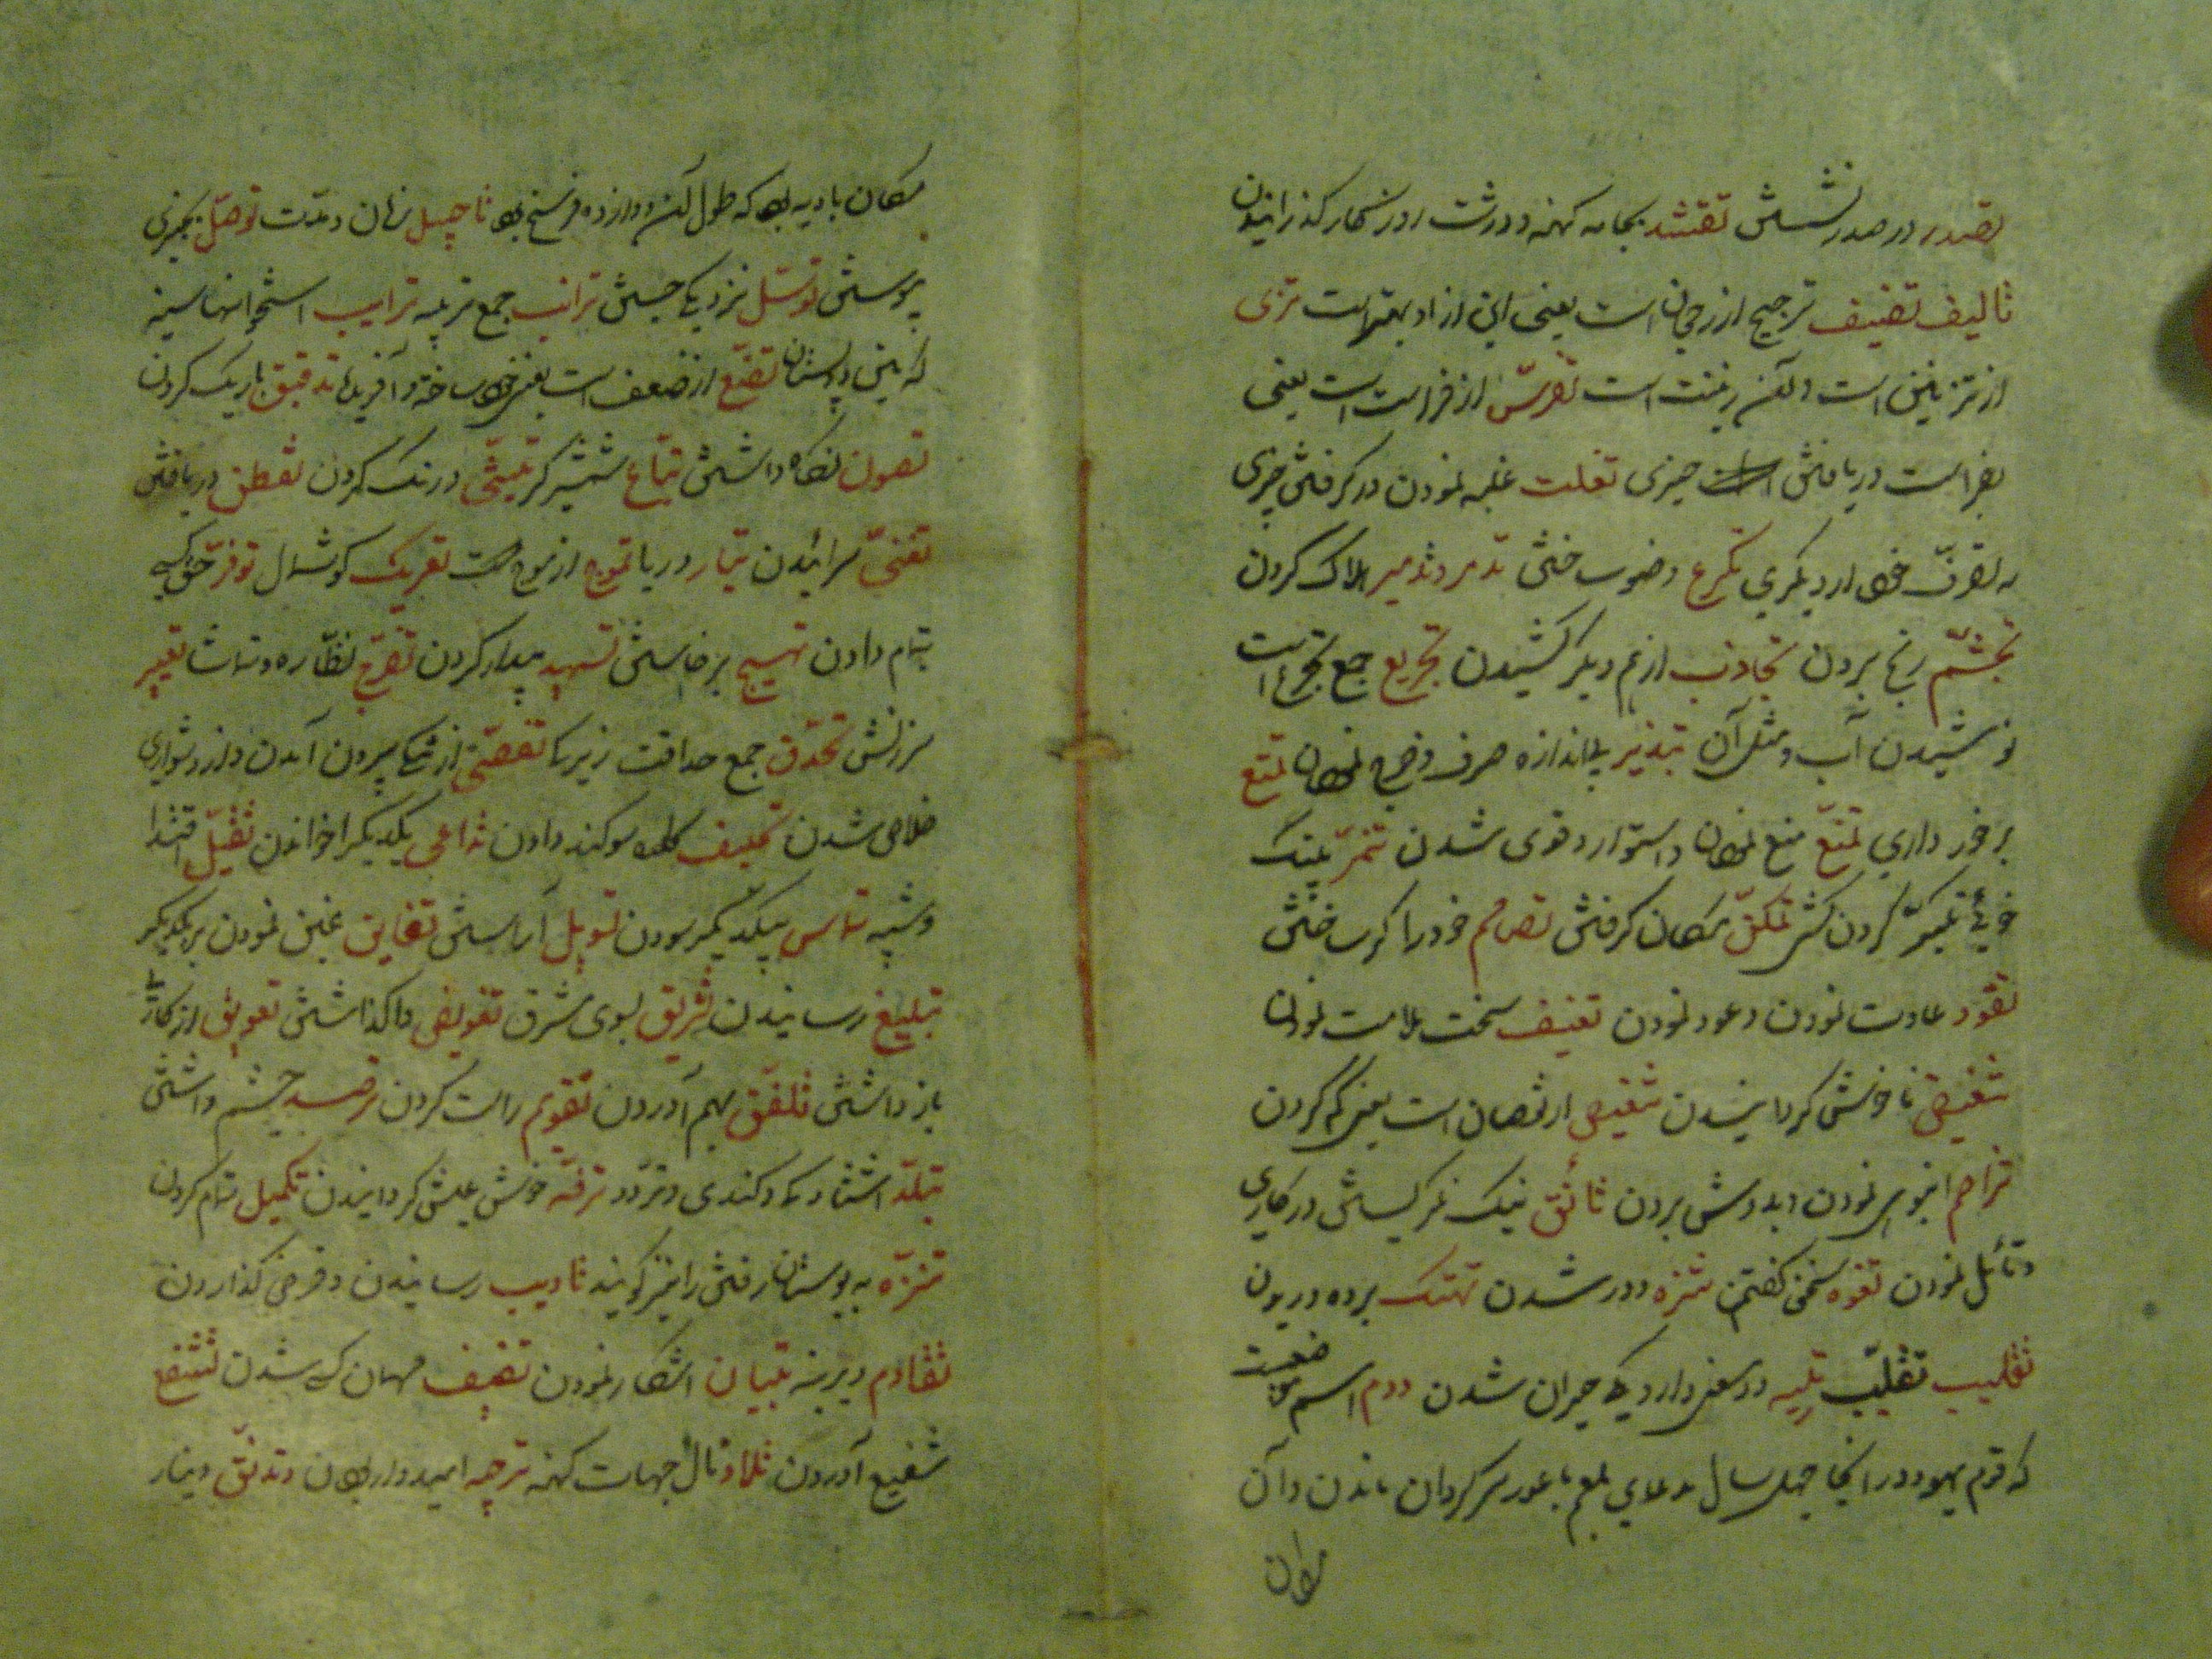 تصدر در صدر نشستن تقشد بجامه کهنه و درشت روزگار گذرانیدن
تالیف تصنیف ترجیح از رجحان است یعنی این از او بهتر است تزی
از تزیین است و آن زینت است تفرس از فراست است یعنی
بفراست دریافتن چیزی تغلت غلبه نمودن در گرفتن چیزی
به تصرف خود از دیگری تکرع وضو ساختن تدمر و تدمیر هلاک کردن
تجشم رنج بردن تجاذب از هم دیگر کشیدن تجریع جمع تجرع است
نوشیدن آب و مثل آن تبذیر بی اندازه صرف و خرج نمودن تمتع
برخورداری تمنع منع نمودن و استوار و قوی شدن تنمر پلنگ
خوئی تکبر کردن کش تمکن مکان گرفتن تصامم خود را کر ساختن
تعود عادت نمودن و عود نمودن تعنیف سخت ملامت نمودن
تنغیص ناخوش گردانیدن تنقیص از نقصان است یعنی کم کردن
تزاحم انبوهی نمودن و بدوش بردن تانق نیک نگریستن در کاری
و تأمل نمودن تفوه سخن گفتن تنزه دور شدن تهتک پرده دریدن
تقلیب تقلب تیه دو معنی دارد یکی حیران شدن دوم اسم موضعیست
که قوم یهود در انجا چهل سال بدعای بلعم باعور سرگردان ماندن و آن
مکان
مکان بادیه بود که طول آن دوازده فرسخ بود تاجیل زمان و مدت توصل بچیزی
پیوستن توسل نزدیکی جستن ترائب جمع تریبه ترایب استخوانهاء سینه
که بین پستان تصنع از ضعف است یعنی خود ساخته و آفریده تدقیق باریک کردن
تصون نگاه داشتن تباع شمشیرگر تمشی درنگ کردن تفطن دریافتن
تغنی سرائیدن تیار دریا تموج از موج است تعریک گوشمال توفر حق کسی
تمام دادن تهییج برخاستن تسهید بیدار کردن تفرج نظاره و تماشا تعییر
سرزنش تحذق جمع حداقت زیرکی تفصی از تنگی بیرون آمدن و از دشواری
خلاص شدن تحلیف کلمه سوکند دادن تداعی یکدیگر را خواندن تقیل اقتدا
و شبیه تماس بیکدیگر سودن تسویل آراستن تغابن غبن نمودن بر یکدیگر
تبلیغ رسانیدن تشریق بسوی شرق تفویض واگذاشتن تعویق از کار
باز داشتن تلفق بهم آوردن تقویم راست کردن ترصد چشم داشتن
تبلد و کندی و تردد ترفه خوش عیش گردانیدن تکمیل تمام کردن
تنزه به بوستان رفتن را نیز گویند تادیب رسانیدن و قرض گذاردن
تقادم دیرینه تبیان اشکار نمودن تضیف مهمان کسی شدن تشفع
شفیع آوردن تلاد مال جهات کهنه ترجیه امیدوار بودن و تدنق دینار